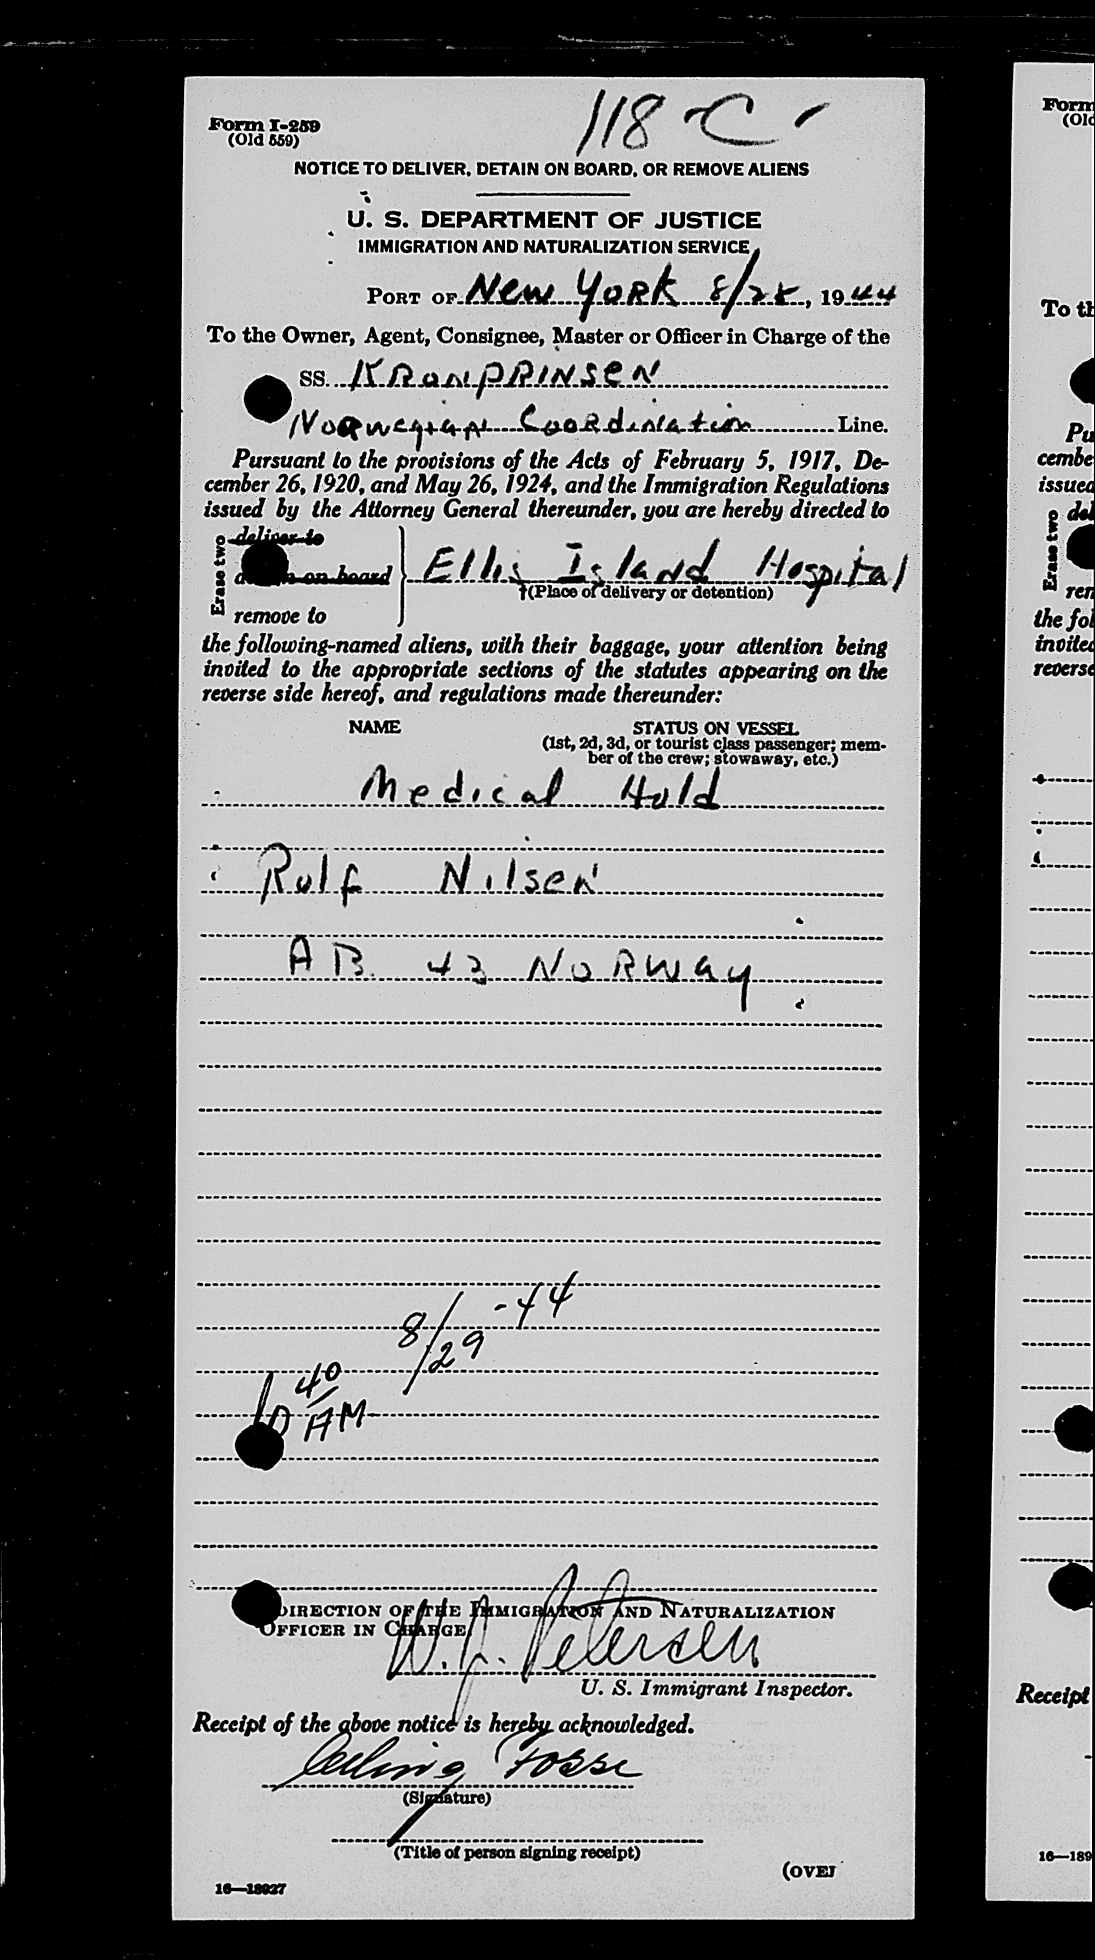 118 C
Form I-259
(Old 559)
NOTICE TO DELIVER, DETAIN ON BOARD, OR REMOVE ALIENS
U. S. DEPARTMENT OF JUSTICE
IMMIGRATION AND NATURALIZATION SERVICE
PORT OF New York 8/28, 1944
To the Owner, Agent, Consignee, Master or Officer in Charge of the
SS. KRONPRINSEN
Norwegian Coordination Line.
Pursuant to the provisions of the Acts of February 5, 1917, De-
cember 26, 1920, and May 26, 1924, and the Immigration Regulations
issued by the Attorney General thereunder, you are hereby directed to
Erase two
deliver to
on board
remove to
Ellis Island Hospital
†(Place of delivery or detention)
the following-named aliens, with their baggage, your attention being
invited to the appropriate sections of the statutes appearing on the
reverse side hereof, and regulations made thereunder:
NAME STATUS ON VESSEL
(1st, 2d, 3d, or tourist class passenger; mem-
ber of the crew; stowaway, etc.)
Medical Hold
Rolf Nilsen
AB. 43 NORWAY
8/29-44
10 40 AM
DIRECTION OF THE IMMIGRATION AND NATURALIZATION
OFFICER IN CHARGE
W. J. Petersen
U. S. Immigrant Inspector.
Receipt of the above notice is hereby acknowledged.
Fosse
(Signature)
(Title of person signing receipt)
(OVER
16—18927
Form
(Old
To th
Pu
cembe
issued
Erase two
del
ren
the fol
invited
reverse
Receipt
16—189